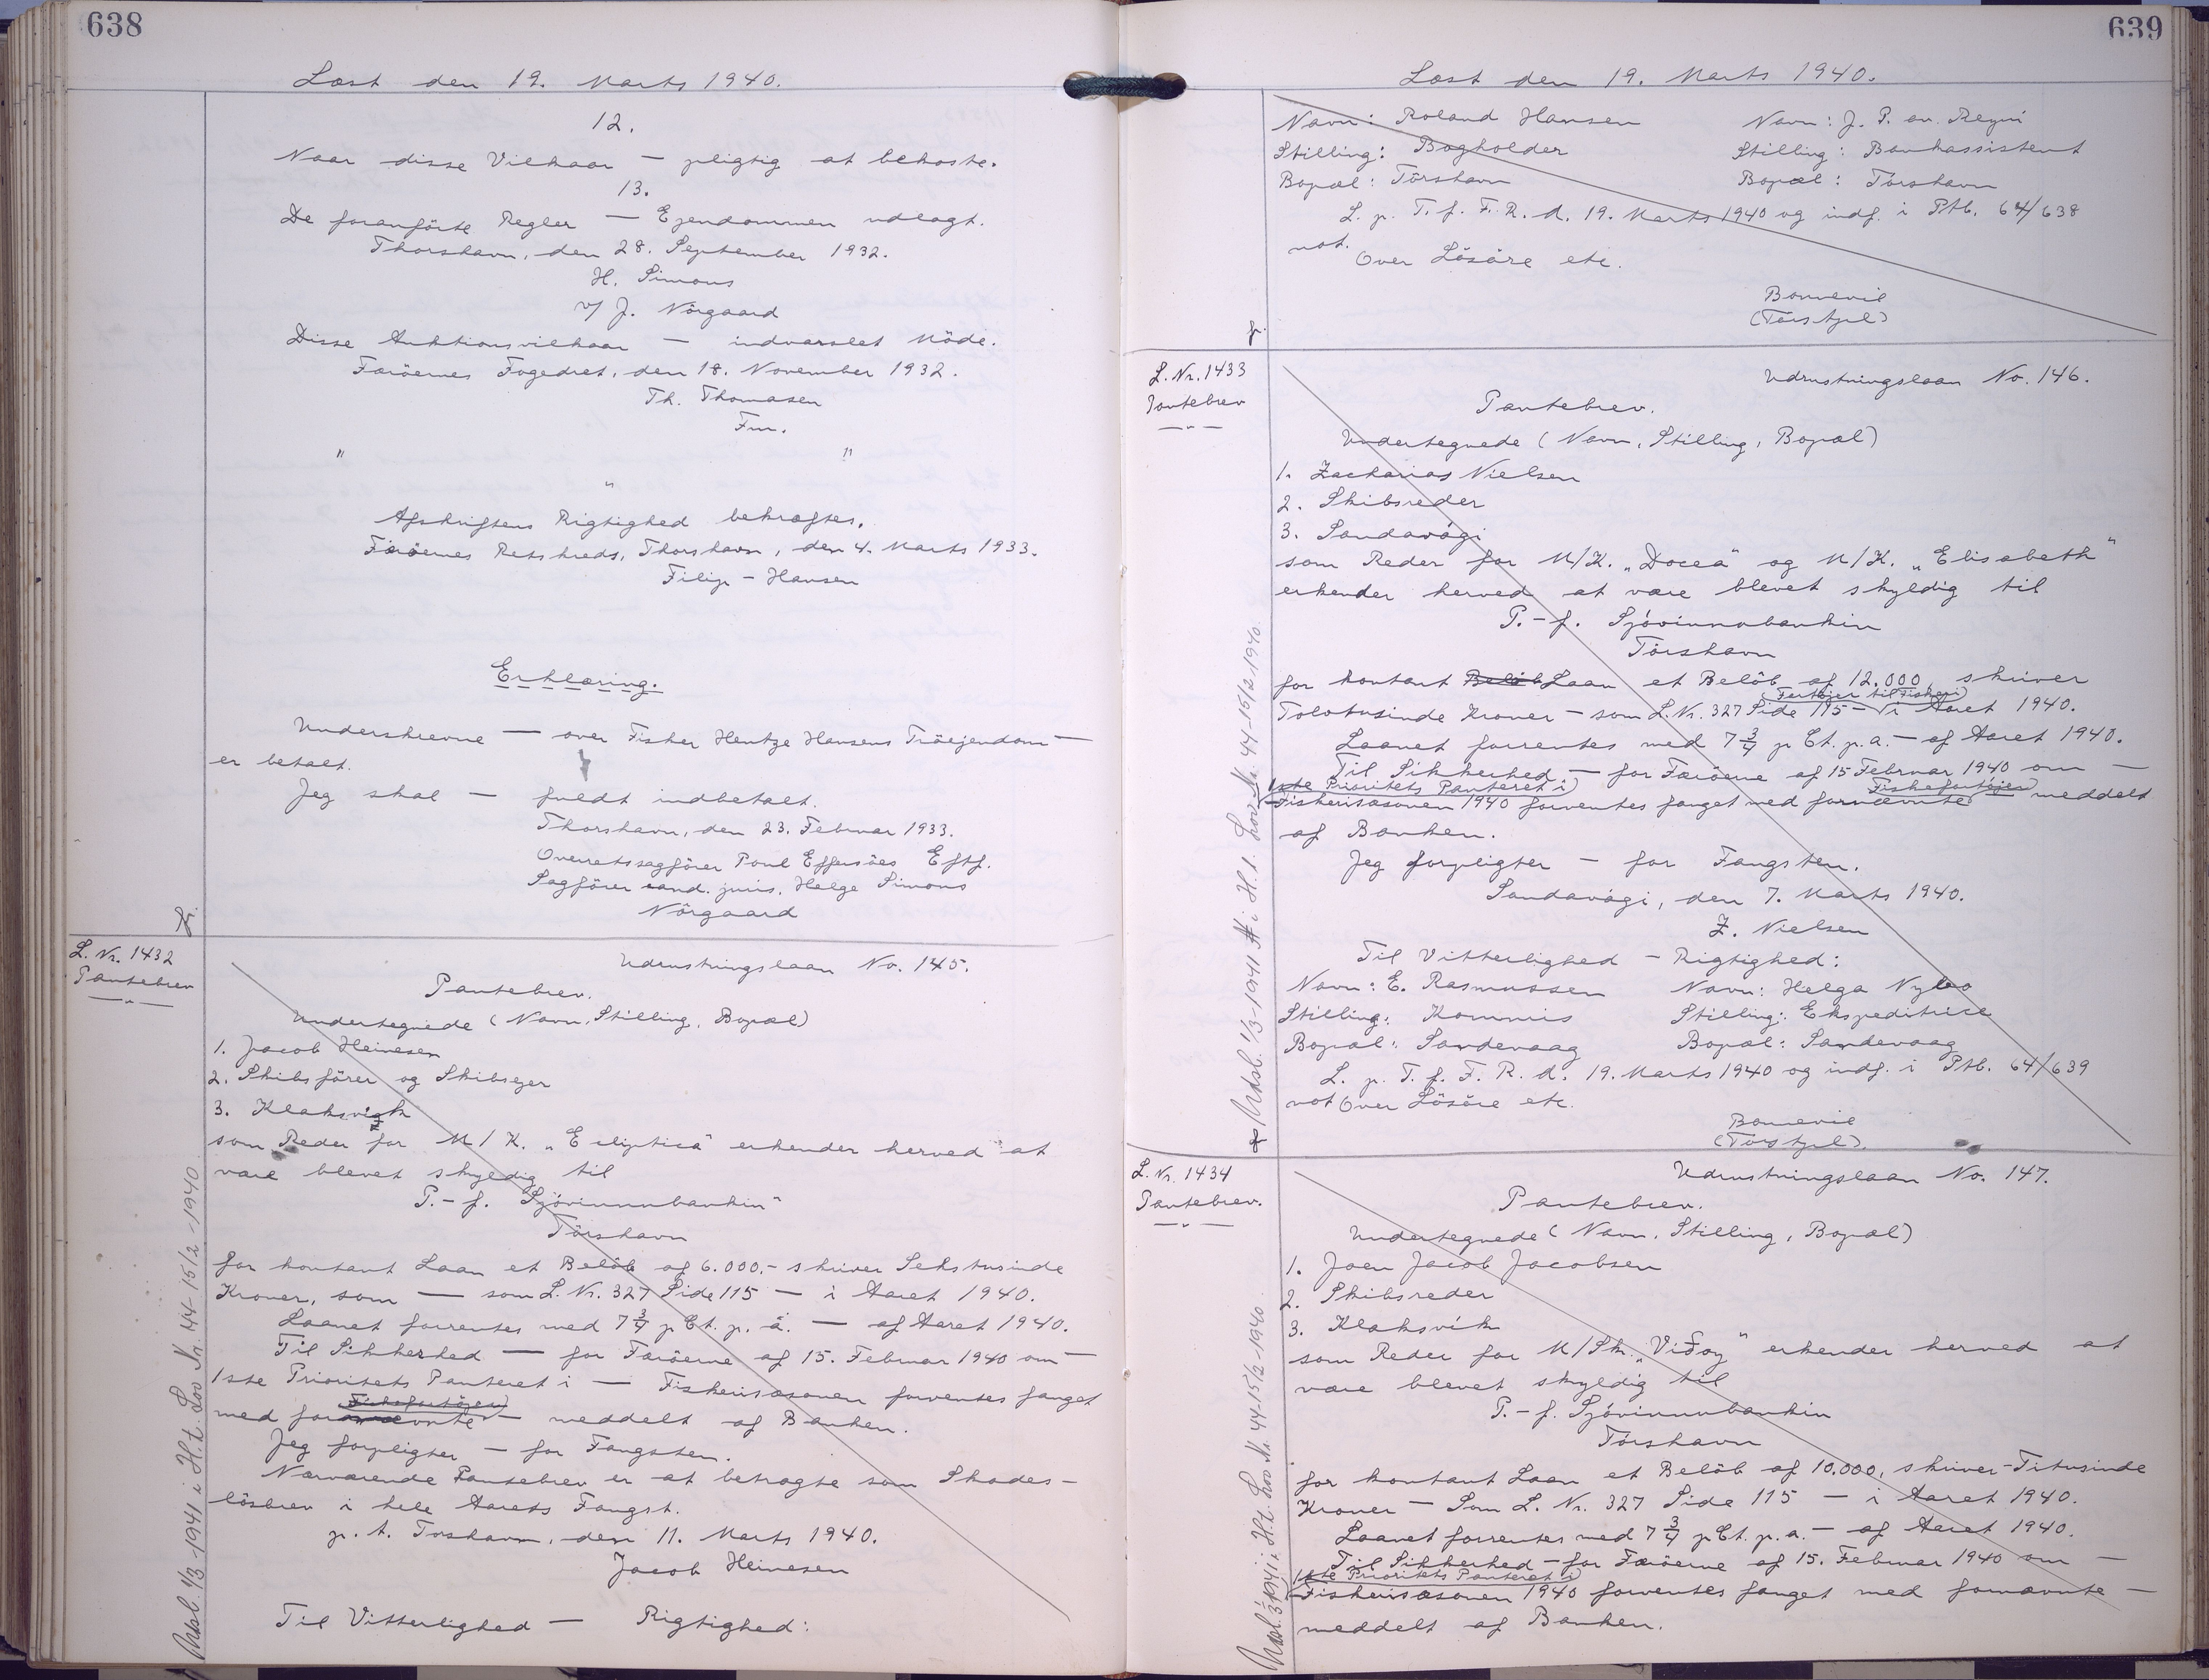 638
Læst den 19. Marts 1940.
12.
Naar disse Vilkaar — pligtig at bekoste.
13.
De foranførte Regler — Ejendommen udlagt.
Thorshavn, den 28. September 1932.
H. Simons
v/ J. Nörgaard
Disse Auktionsvilkaar — indvarslet Möde.
Færöernes Fogedret, den 18. November 1932.
Th. Thomasen
Fm.
" "
"
Afskriftens Rigtighed bekræftes.
Færöernes Retskreds, Thorshavn, den 4. Marts 1933.
Filip-Hansen
Erklæring.
Underskrevne — over Fisker Hentze Hansens Träejendom —
er betalt.
Jeg skal — fuldt indbetalt.
Thorshavn, den 23. Februar 1933.
Overretssagförer Poul Effersöes Eftf.
Sagförer cand. juris. Helge Simons
Nörgaard
L. Nr. 1432
Pantebrev
Udrustningslaan No. 145.
Pantebrev.
Undertegnede (Navn, Stilling, Bopæl)
1. Jacob Heinesen
2. Skibsförer og Skibsejer
3. Klaksvig
som Reder for M/K. „Ecliptica" erkender herved at
være blevet skyldig til
P.-f. Sjóvinnubankin"
Tórshavn
for kontant Laan et Belöb af 6.000.- skriver Sekstusinde
Kroner, som — som L. Nr. 327 Side 115 — i Aaret 1940.
Laanet forrentes med 7 3/4 p Ct. p. á. — af Aaret 1940.
Til Sikkerhed — for Færöerne af 15. Februar 1940 om —
1ste Prioritets Panteret i — Fiskerisæsonen forventes fanget
Fiskefartöjer
med fornævnte — meddelt af Banken.
Jeg forpligter — for Fangsten.
Nærværende Pantebrev er at betragte som Skades-
lösbrev i hele Aarets Fangst.
p. t. Torshavn, den 11. Marts 1940.
Jacob Heinesen
Til Vitterlighed — Rigtighed:
Udsl. 1/3-1941 i H. t. Lov Nr. 44-15/2-1940
639
Læst den 19. Marts 1940.
Navn: Roland Hansen Navn: J. P. av. Reyni
Stilling: Bogholder Stilling: Bankassistent
Bopæl: Tórshavn Bopæl: Tórshavn
L. p. T. f. F. R. d. 19. Marts 1940 og indf. i Ptb. 64/638
not.
Over Lösöre etc.
Bornevil
L. Nr. 1433
Pantebrev
Udrustningslaan No. 146.
Pantebrev.
Undertegnede (Navn, Stilling, Bopæl)
1. Zacharias Nielsen
2. Skibsreder
3. Sandavági
som Reder for M/K. „Docea" og M/K. „Elisabeth"
erkender herved at være blevet skyldig til
P.-f. Sjóvinnubankin
Tórshavn
for kontant Belöb Laan et Belöb af 12.000, skriver
(Fartöjer til Fiskeri)
Tolvtusinde Kroner — som L. Nr. 327 Side 115 — i Aaret 1940.
Laanet forrentes med 7 3/4 p Ct. p. a. — af Aaret 1940.
Til Sikkerhed — for Færöerne af 15 Februar 1940 om —
1ste Prioritets Panteret i Fiskefartöjer
Fiskerisæsonen 1940 forventes fanget med fornævnte meddelt
af Banken.
Jeg forpligter — for Fangsten.
Sandavági, den 7. Marts 1940.
Z. Nielsen
Til Vitterlighed — Rigtighed:
Navn: E. Rasmussen Navn: Helga Nybo
Stilling: Kommis Stilling: Ekspeditrice
Bopæl: Sandevaag Bopæl: Sandevaag
L. p. T. f. F. R. d. 19. Marts 1940 og indf. i Ptb. 64/639
not Over Lösöre etc.
Bornevil
Udsl. 1/3-1941 i H. t. Lov Nr. 44-15/2-1940.
L. Nr. 1434
Pantebrev.
Udrustningslaan No. 147.
Pantebrev.
Undertegnede (Navn, Stilling, Bopæl)
1. Joen Jacob Jacobsen
2. Skibsreder
3. Klaksvík
som Reder for M/Sk. „Viðoy" erkender herved at
være blevet skyldig til
P.-f. Sjóvinnubankin
Tórshavn
for kontant Laan et Belöb af 10.000, skriver-Titusinde
Kroner — Som L. Nr. 327 Side 115 — i Aaret 1940.
Laanet forrentes med 7 3/4 p Ct. p. a. — af Aaret 1940.
Til Sikkerhed — for Færöerne af 15. Februar 1940 om —
1ste Prioritets Panteret i
Fiskerisæsonen 1940 forventes fanget med fornævnte —
meddelt af Banken.
Udsl. 1/3-1941 i H. t. Lov Nr. 44-15/2-1940